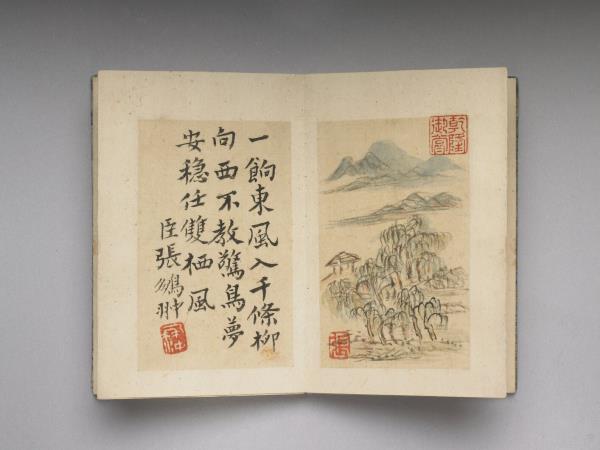 乾隆
御賞
一餉東風入千條柳
向西不教驚鳥夢
安穩任雙栖風
臣張鵬翀